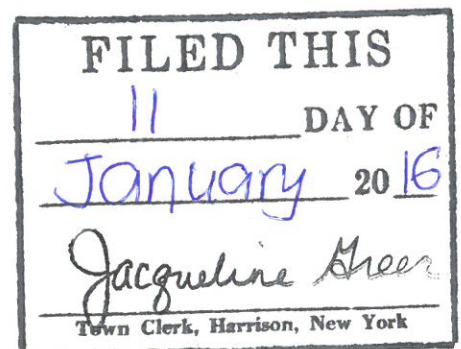 FILED THIS
11 DAY OF
January 20 16
Jacqueline Greer
Town Clerk, Harrison, New York